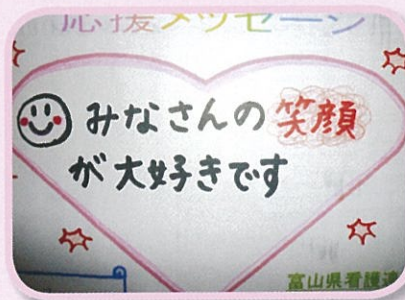 応援メッセージ
みなさんの笑顔
が大好きです
富山県看護連